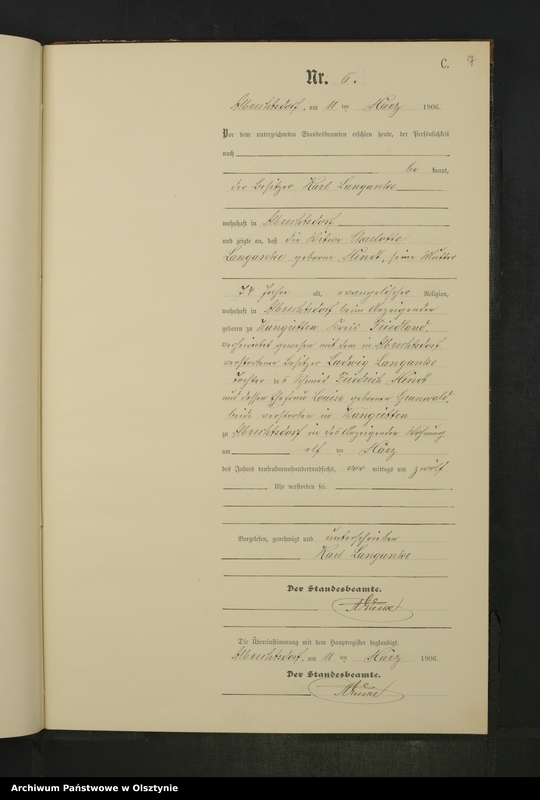 C. 7
Nr. 6.
Albrechtsdorf, am 11 ten März 1906.
Vor dem unterzeichneten Standesbeamten erschien heute, der Persönlichkeit
nach
be kannt,
der Besitzer Karl Langanke
wohnhaft in Albrechtsdorf
und zeigte an, daß die Witwe Charlotte
Langanke geborene Hindt, seine Mutter
74 Jahre alt, evangelischer Religion,
wohnhaft in Albrechtsdorf beim Anzeigenden
geboren zu Wangritten Kreis Friedland,
verheiratet gewesen mit dem in Albrechtsdorf
verstorbenen Besitzer Ludwig Langanke
Tochter des Schmied Friedrich Hindt
und dessen Ehefrau Louise geborenen Grunwald,
beide verstorben in Wangritten
zu Albrechtsdorf in des Anzeigenden Wohnung
am elf ten März
des Jahres tausendneunhundertundsechs, vor mittags um zwölf
Uhr verstorben sei.
Vorgelesen, genehmigt und unterschrieben
Karl Langanke
Der Standesbeamte.
Die Übereinstimmung mit dem Hauptregister beglaubigt.
Albrechtsdorf, am 11 ten März 1906.
Der Standesbeamte.
Archiwum Państwowe w Olsztynie